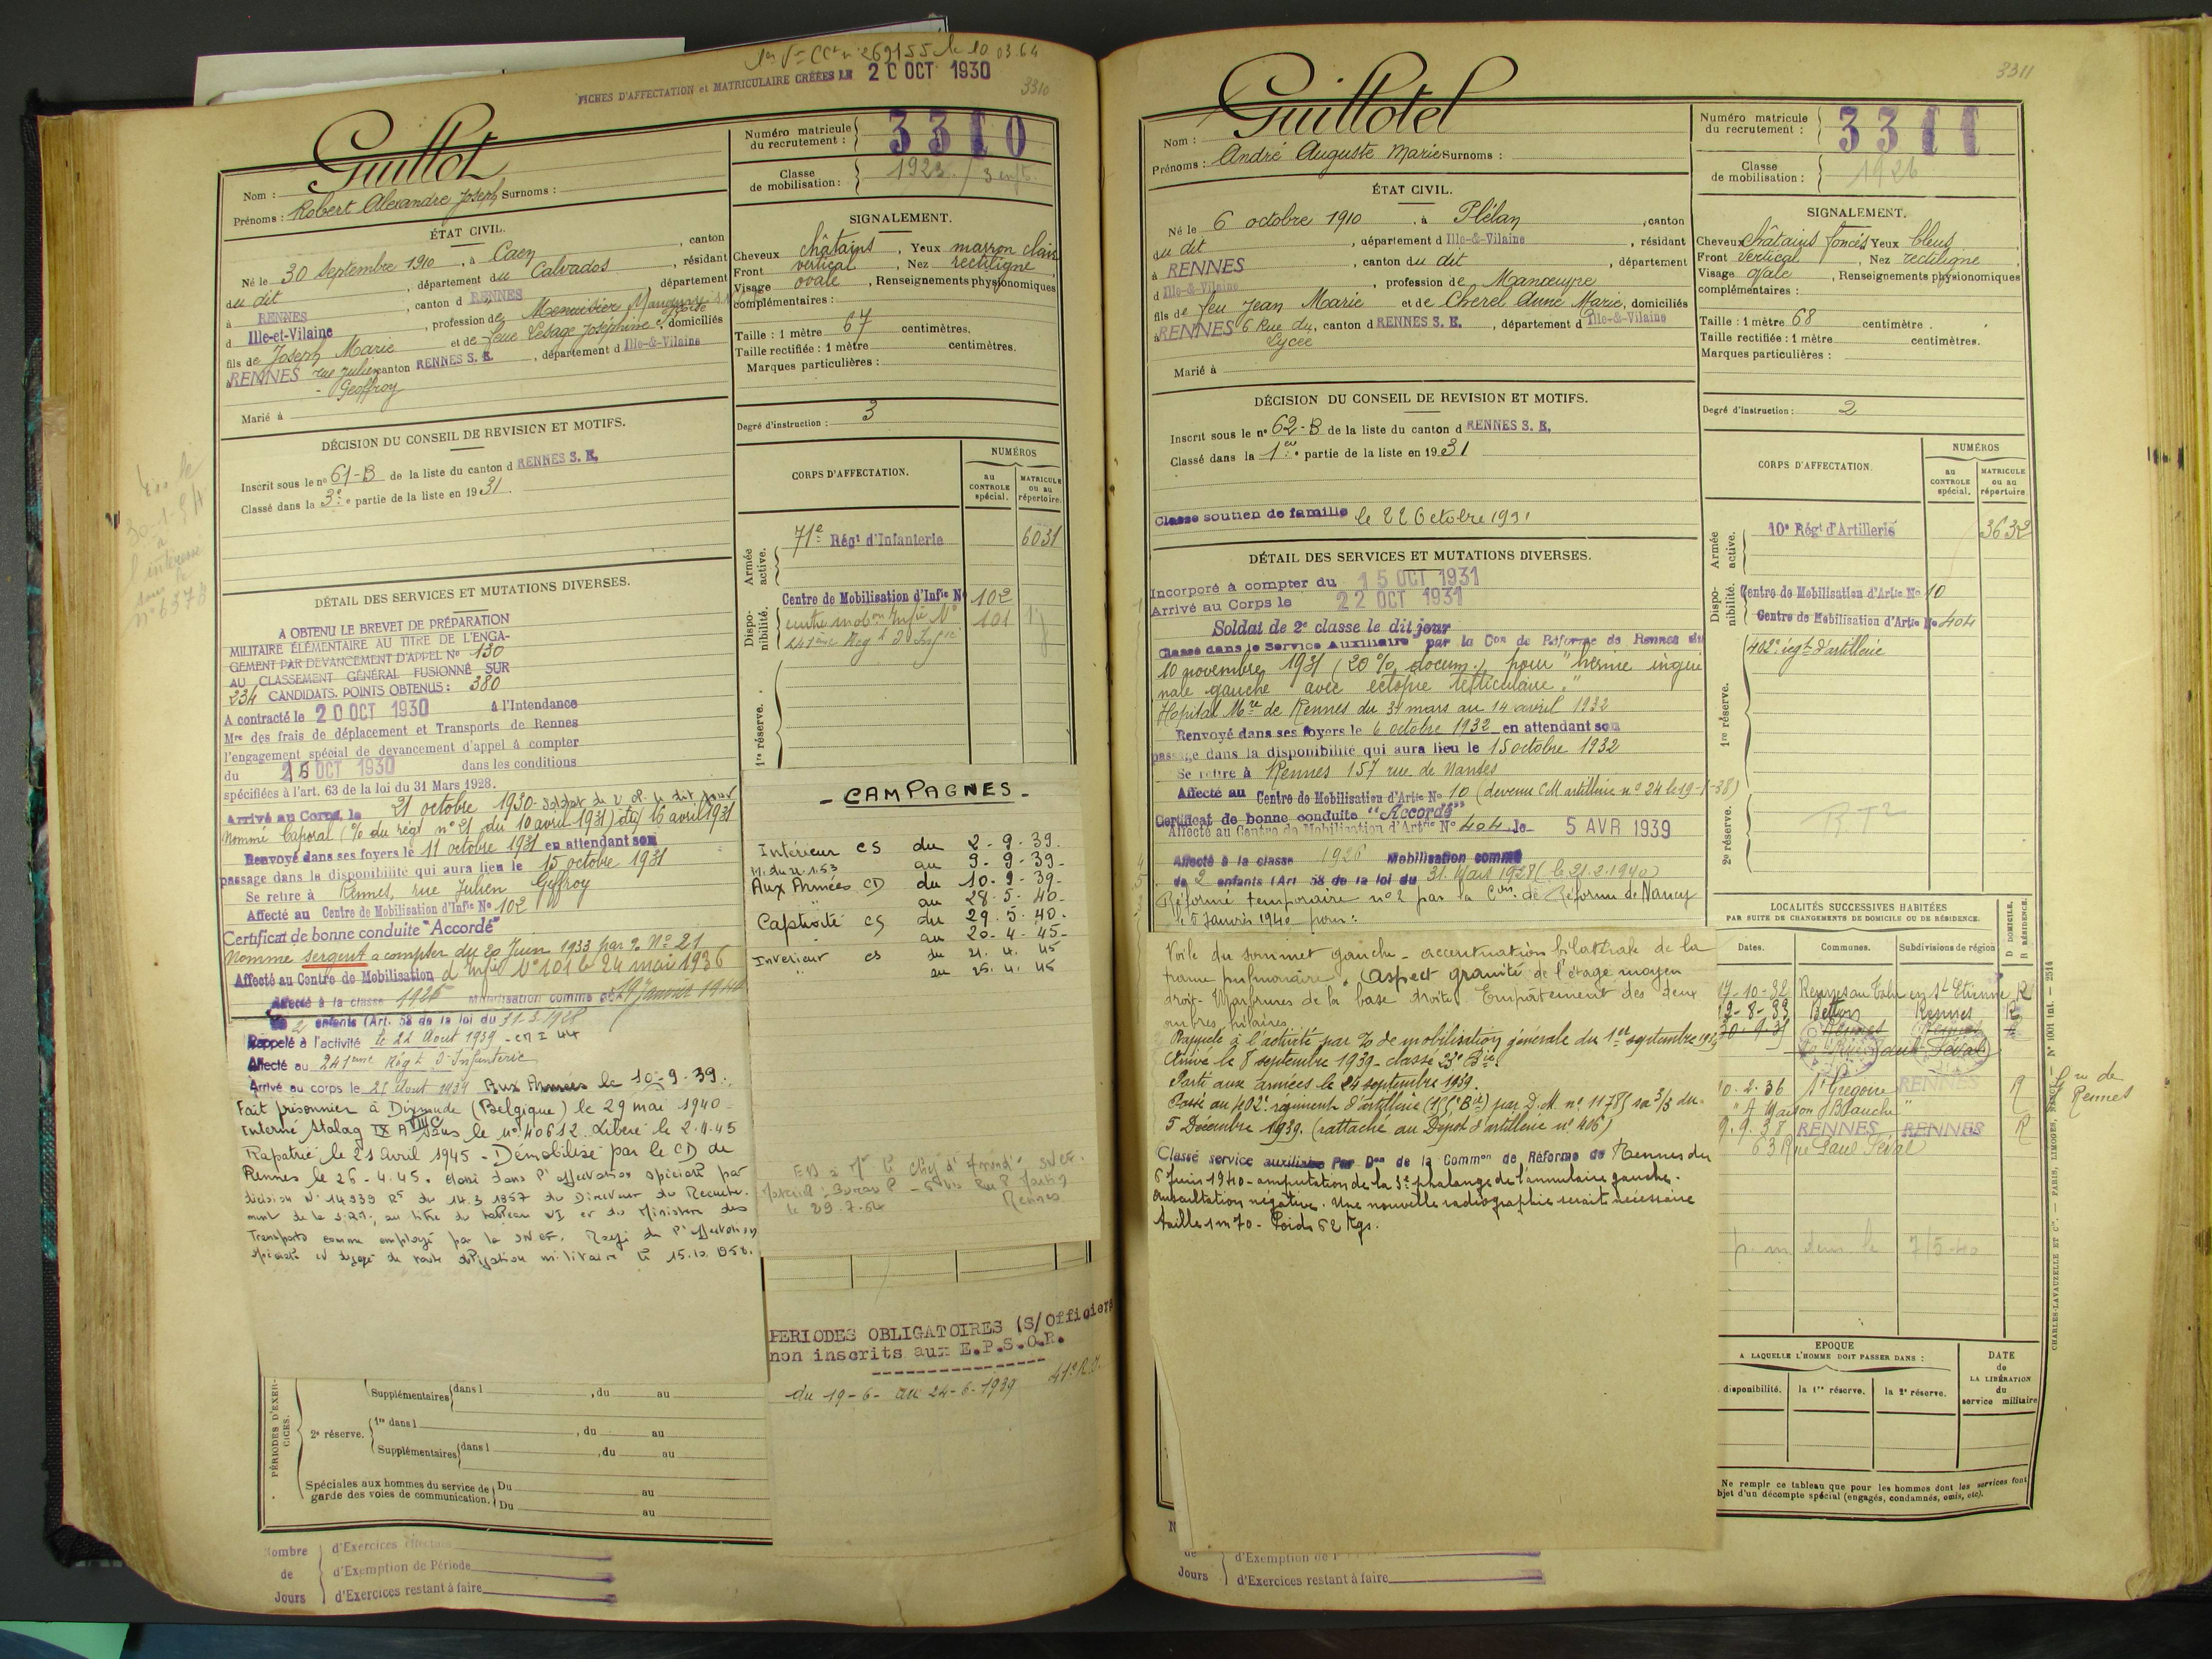 FICHES D'AFFECTATION et MATRICULAIRE CRÉÉES LE 20 OCT 1930
3310
Nom : Guillot
Prénoms : Robert Alexandre Joseph Surnoms :
ÉTAT CIVIL.
Né le 30 Septembre 1910, à Caen, canton
du dit, département du Calvados, résidant
à RENNES, canton d RENNES, département
d Ille-et-Vilaine, profession de Menuisier
fils de Joseph Marie et de feue Lesage Joséphine, domiciliés
à RENNES rue Julien canton RENNES S. E., département d Ille-&-Vilaine
Geoffroy
Marié à
DÉCISION DU CONSEIL DE REVISION ET MOTIFS.
Inscrit sous le nº 61-B de la liste du canton d RENNES S. E.
Classé dans la 3e partie de la liste en 1931
DÉTAIL DES SERVICES ET MUTATIONS DIVERSES.
A OBTENU LE BREVET DE PRÉPARATION
MILITAIRE ÉLÉMENTAIRE AU TITRE DE L'ENGA-
GEMENT PAR DEVANCEMENT D'APPEL Nº 130
AU CLASSEMENT GÉNÉRAL FUSIONNÉ SUR
234 CANDIDATS. POINTS OBTENUS : 380
A contracté le 20 OCT 1930 à l'Intendance
Mre des frais de déplacement et Transports de Rennes
l'engagement spécial de devancement d'appel à compter
du OCT 1930 dans les conditions
spécifiées à l'art. 63 de la loi du 31 Mars 1928.
Arrivé au Corps, le 21 octobre 1930. Soldat de 2e cl. le dit jour
Nommé Caporal (% du régt nº 21 du 10 avril 1931) du 16 avril 1931
Renvoyé dans ses foyers le 11 octobre 1931 en attendant son
passage dans la disponibilité qui aura lieu le 15 octobre 1931
Se retire à Rennes, rue Julien Geffroy
Affecté au Centre de Mobilisation d'Infie Nº 102
Certificat de bonne conduite "Accordé"
Nommé sergent a compter du 20 Juin 1933 par % Nº 21
Affecté au Centre de Mobilisation d'Infie Nº 101 le 24 mai 1936
Affecté à la classe 1926 Mobilisation comme
de 2 enfants (Art. 58 de la loi du 31.3.1928
Rappelé à l'activité le 22 Aout 1939 - CM I 44
Affecté au 241ème Régt d'Infanterie
Arrivé au corps le Aout 1939 Aux Armées le 10-9.39.
Fait prisonnier à Dixmude (Belgique) le 29 mai 1940
Interné Stalag IX A VIII C sous le nº 40612. Libéré le 2.4.45
Rapatrié le 21 Avril 1945 - Démobilisé par le CD de
Rennes le 26-4.45. Classé dans l'affectation spéciale par
décision Nº 14939 RS du 14.3 1957 du Directeur du Recrute-
ment de la 3.R.M., au titre du tableau VI et du Ministère des
Transports comme employé par la SNCF. Rayé de l'affectation
spéciale et dégagé de toute obligation militaire le 15.10.1958.
PÉRIODES D'EXER-
CICES.
Supplémentaires dans l , du au
2e réserve. 1re dans l , du au
Supplémentaires dans l , du au
Spéciales aux hommes du service de
garde des voies de communication.
Du au
Du au
Nombre
de
Jours
d'Exercices effectués
d'Exemption de Période
d'Exercices restant à faire
Numéro matricule
du recrutement : 3310
Classe
de mobilisation : 1923 / 3 enfts
SIGNALEMENT.
Cheveux châtains, Yeux marron clair
Front vertical, Nez rectiligne
Visage ovale, Renseignements physionomiques
complémentaires :
Taille : 1 mètre 67 centimètres.
Taille rectifiée : 1 mètre centimètres.
Marques particulières :
Degré d'instruction : 3
CORPS D'AFFECTATION.
NUMÉROS
au
CONTROLE
spécial.
MATRICULE
ou au
répertoire.
Armée
active.
71e Régt d'Infanterie 6031
Dispo-
nibilité.
Centre de Mobilisation d'Infie Nº 102
Centre mobon Infie Nº 101
241ème Régt d'Infie
1re réserve.
- CAMPAGNES -
Intérieur CS du 2-9-39.
au 9-9-39-
Aux Armées CD du 10-9-39-
au 28.5-40-
Captivité CS du 29.5.40.
au 20-4-45-
Intérieur CS du 21.4.45
au 25.4.45
PERIODES OBLIGATOIRES (S/Officiers
non inscrits aux E.P.S.O.R.
du 19-6- au 24-6-1939 41e R.I.
3311
Nom : Guillotel
Prénoms : André Auguste Marie Surnoms :
ÉTAT CIVIL.
Né le 6 octobre 1910, à Plélan, canton
du dit, département d Ille-&-Vilaine, résidant
à RENNES, canton du dit, département
d Ille-&-Vilaine, profession de Manœuvre
fils de feu Jean Marie et de Cherel Anne Marie, domiciliés
à RENNES 6 Rue du, canton d RENNES S. E., département d Ille-&-Vilaine
Lycée
Marié à
DÉCISION DU CONSEIL DE REVISION ET MOTIFS.
Inscrit sous le nº 62-B de la liste du canton d RENNES S. E.
Classé dans la 1ere partie de la liste en 1931
Classé soutien de famille le 22 Octobre 1931
DÉTAIL DES SERVICES ET MUTATIONS DIVERSES.
Incorporé à compter du 15 OCT 1931
Arrivé au Corps le 22 OCT 1931
Soldat de 2e classe le dit jour
Classé dans le Service Auxiliaire par la Con de Réforme de Rennes du
10 novembre 1931 (20% docum.) pour "hernie ingui
nale gauche avec ectopie testiculaire."
Hopital Mre de Rennes du 31 mars au 14 avril 1932
Renvoyé dans ses foyers le 6 octobre 1932 en attendant son
passage dans la disponibilité qui aura lieu le 15 octobre 1932
Se retire à Rennes 157 rue de Nantes
Affecté au Centre de Mobilisation d'Artie Nº 10 (devenu CM artillerie nº 24 le 19-1-38)
Certificat de bonne conduite "Accordé"
Affecté au Centre de Mobilisation d'Artie Nº 404 le 5 AVR 1939
Affecté à la classe 1926 Mobilisation comme
de 2 enfants (Art 58 de la loi du 31 Mars 1928 (le 21.2.1940)
Réformé temporaire nº 2 par la Con de Réforme de Nancy
le 5 Janvier 1940 pour :
Voile du sommet gauche - accentuation bilatérale de la
trame pulmonaire. (aspect granité de l'étage moyen
droit - Marbrures de la base droite. Empâtement des deux
ombres hilaires.
Rappelé à l'activité par % de mobilisation générale du 1er septembre 1939
Arrivé le 8 septembre 1939 - classé 23e Bie
Parti aux armées le 24 septembre 1939.
Passé au 402e régiment d'artillerie par D.M. nº 11785 10 3/3 du
5 Décembre 1939. (rattaché au Dépot d'artillerie nº 406)
Classé service auxiliaire Par Don de la Common de Réforme de Rennes du
6 Juin 1940 - amputation de la 3e phalange de l'annulaire gauche.
Auscultation négative. Une nouvelle radiographie serait nécessaire
taille 1m70 - Poids 62 Kgs.
de
Jours
d'Exemption de
d'Exercices restant à faire
Numéro matricule
du recrutement : 3311
Classe
de mobilisation : 1926
SIGNALEMENT.
Cheveux châtains foncés Yeux bleus
Front vertical, Nez rectiligne
Visage ovale, Renseignements physionomiques
complémentaires :
Taille : 1 mètre 68 centimètre.
Taille rectifiée : 1 mètre centimètres.
Marques particulières :
Degré d'instruction : 2
CORPS D'AFFECTATION.
NUMÉROS
au
CONTROLE
spécial.
MATRICULE
ou au
répertoire.
Armée
active.
10e Régt d'Artillerie 3632
Dispo-
nibilité.
Centre de Mobilisation d'Artie Nº 10
Centre de Mobilisation d'Artie Nº 404
1re réserve.
402e régt d'artillerie
2e réserve.
LOCALITÉS SUCCESSIVES HABITÉES
PAR SUITE DE CHANGEMENTS DE DOMICILE OU DE RÉSIDENCE.
Dates.
Communes.
Subdivisions de région
D DOMICILE.
R RÉSIDENCE.
17-10-32 Rennes au Tabac en St Etienne R
12-8-33 Betton Rennes R
Rennes Rennes
10-2-36 St Grégoire RENNES R
"A Maison Blanche"
9.9.38 RENNES RENNES R
63 Rue Paul Féval
EPOQUE
A LAQUELLE L'HOMME DOIT PASSER DANS :
disponibilité.
la 1re réserve.
la 2e réserve.
DATE
de
LA LIBÉRATION
du
service militaire
Ne remplir ce tableau que pour les hommes dont les services font
objet d'un décompte spécial (engagés, condamnés, omis, etc).
CHARLES-LAVAUZELLE ET Cie. — PARIS, LIMOGES, NANCY. — Nº 1001 int. — 2514